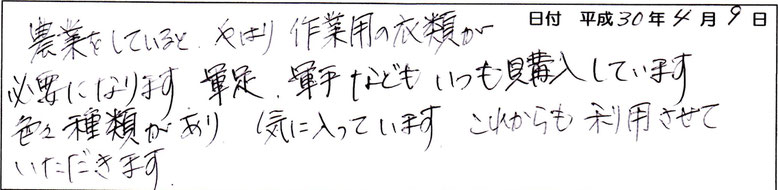 日付 平成30年4月9日
農業をしていると、やはり 作業用の衣類が
必要になります 軍足、軍手なども いつも購入しています
色々種類があり 気に入っています これからも 利用させて
いただきます